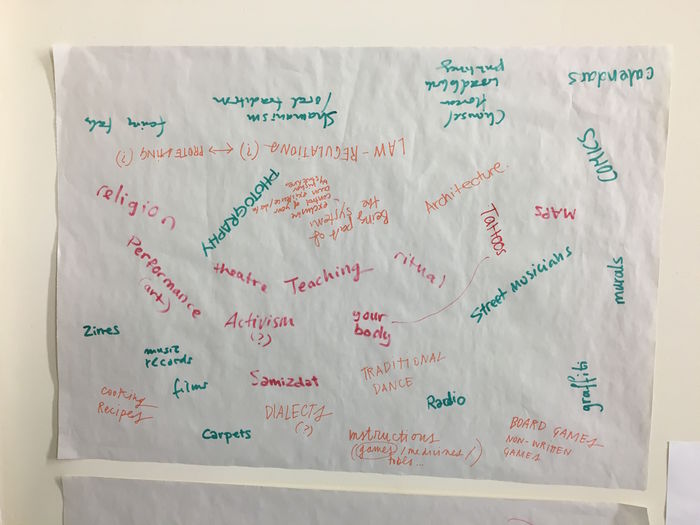 calendars
Chansel
Korean
woodblock
printing
Shamanism
/oral tradition
fairy tales
COMICS
LAW - REGULATIONS (?) ↔ PROTECTING (?)
religion
PHOTOGRAPHY
Being part of
the system:
exclusive
control of your
own existence
Architecture.
TATTOOS
MAPS
Performance
(art)
theatre
Teaching
ritual
Street Musicians
murals
Activism
(?)
your
body
Zines
music
records
films
Samizdat
TRADITIONAL
DANCE
graffiti
cooking
Recipes
DIALECTS
(?)
Radio
Carpets
instructions
(games/medicines/
tools...)
BOARD GAMES
NON-WRITTEN
GAMES